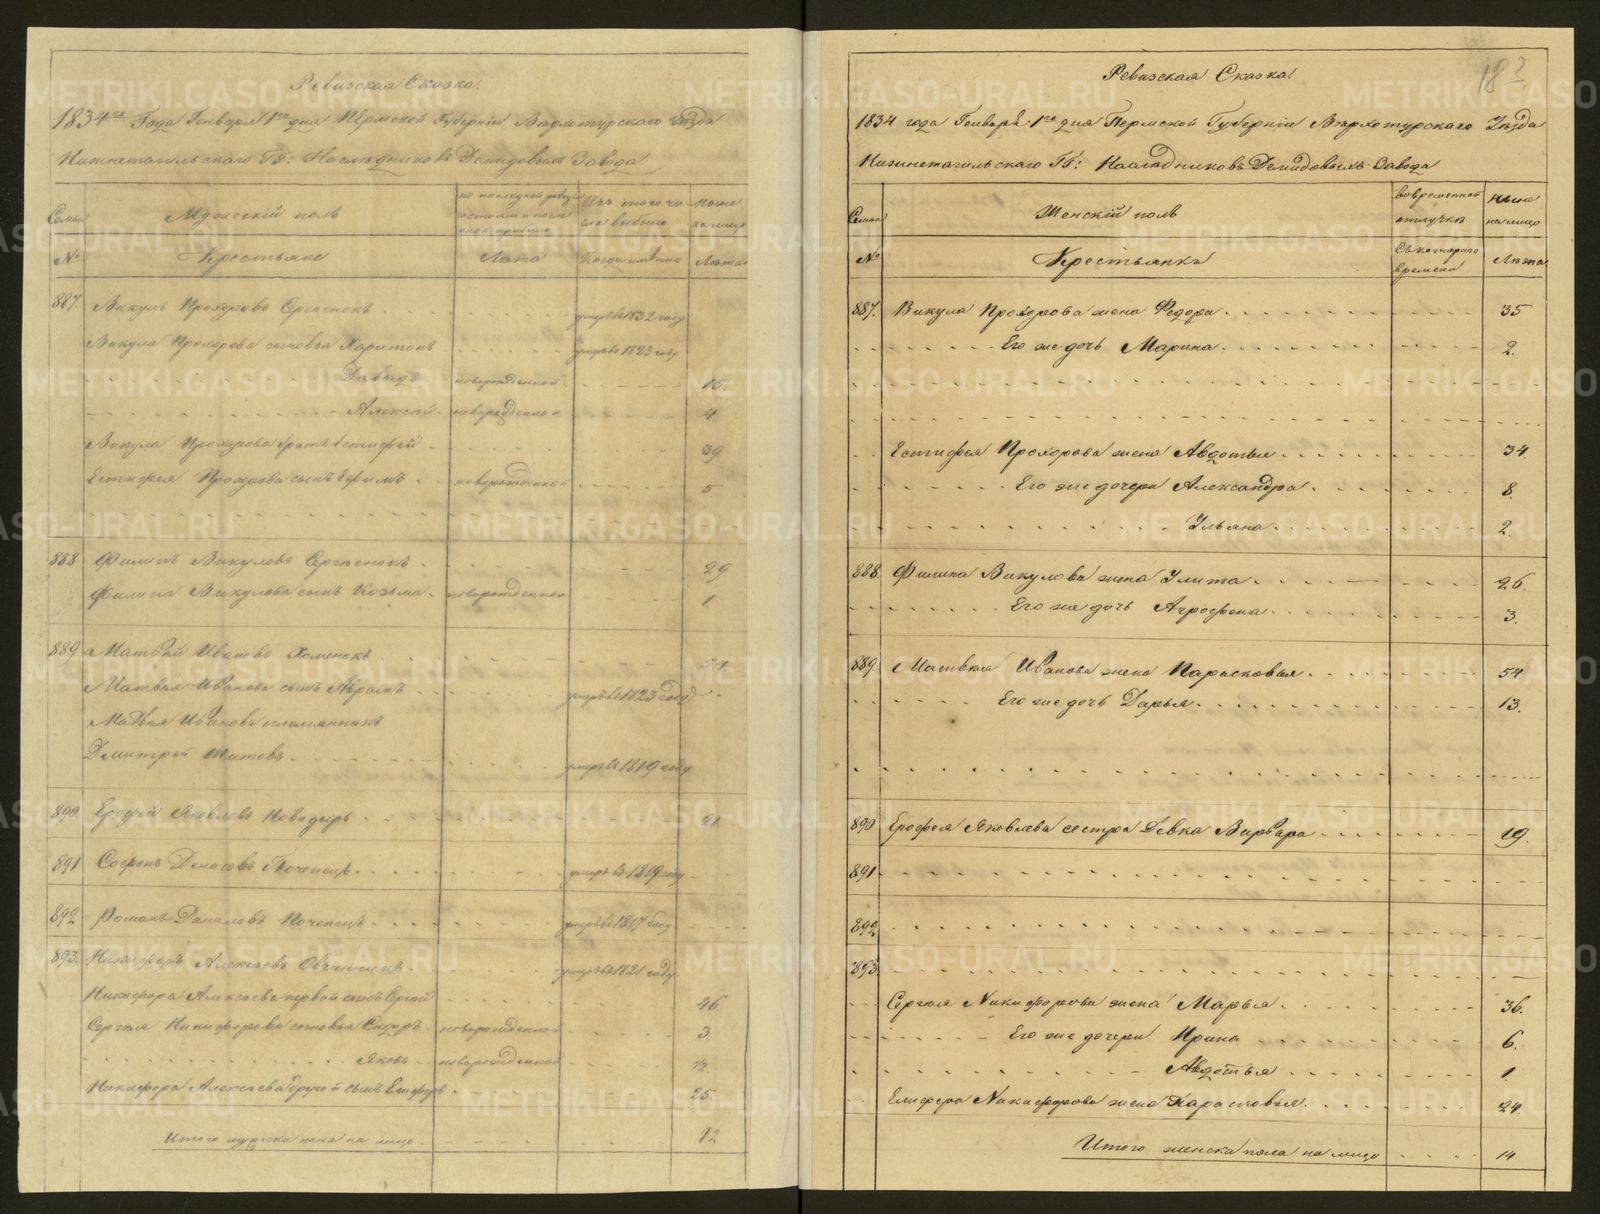 Ревизская Сказка.
1834го Года Генваря 1го дня Пермской Губернии Верхотурскаго Уезда
Нижнетагильскаго ГГ: Наследниковъ Демидовыхъ Завода
Семьи
Мужескій полъ
Изъ того числа выбыло
Ныне на лицо
№
Крестьяне
Лѣта
Когда именно
Лѣта
887. Викулъ Прохоровъ Сергенокъ умеръ въ 1832 году
Викула Прохорова сыновья Харитонъ умеръ въ 1823 году
Давыдъ новорожденной 15
Алексей новорожденной 4
Викула Прохорова братъ Естифей 39
Естифея Прохорова сынъ Ефимъ новорожденной 5
888 Филипъ Викуловъ Сергенокъ 29
Филипа Викулова сынъ Козьма новорожденной 1
889 Матвѣй Ивановъ Хоменокъ 54
Матвѣя Иванова сынъ Абрамъ умеръ въ 1823 году
Матвѣя Иванова племянникъ
Дмитрей Титовъ умеръ въ 1819 году
890 Ерофей Яковлевъ Поводырь 21
891 Софронъ Денисовъ Почепецъ умеръ въ 1819 году
892 Романъ Даниловъ Почепецъ умеръ въ 1817 году
893. Никифоръ Алексѣевъ Овчинникъ умеръ въ 1821 году
Никифора Алексѣева первой сынъ Сергей 46
Сергея Никифорова сыновья новорожденной 3
Яковъ новорожденной
Никифора Алексѣева другой сынъ Елиферъ 25
Итого мужска пола на лицо 12
183
Ревизская Сказка!
1834 года Генваря 1го дня Пермской Губерніи Верхотурскаго Уезда
Нижнетагильскаго ГГ: Наследниковъ Демидовыхъ Завода
Семьи
Женскій полъ
во временной отлучке
Ныне на лицо
№
Крестьянки
Съ котораго времени
Лѣта
887. Викула Прохорова жена Федора 35
Его же дочь Марина. 2.
Естифея Прохорова жена Авдотья 34
Его же дочери Александра 8.
Ульяна 2.
888. Филипа Викулова жена Улита 26.
Его же дочь Агрофена 3.
889. Матвѣя Иванова жена Парасковья 54.
Его же дочь Дарья 13.
890 Ерофея Яковлева сестра девка Варвара 19.
891
892
893
Сергея Никифорова жена Марья 36.
Его же дочери Ирина 6.
Авдотья 1.
Елифера Никифорова жена Парасковья 24.
Итого женска пола на лицо 14
METRIKI.GASO-URAL.RU